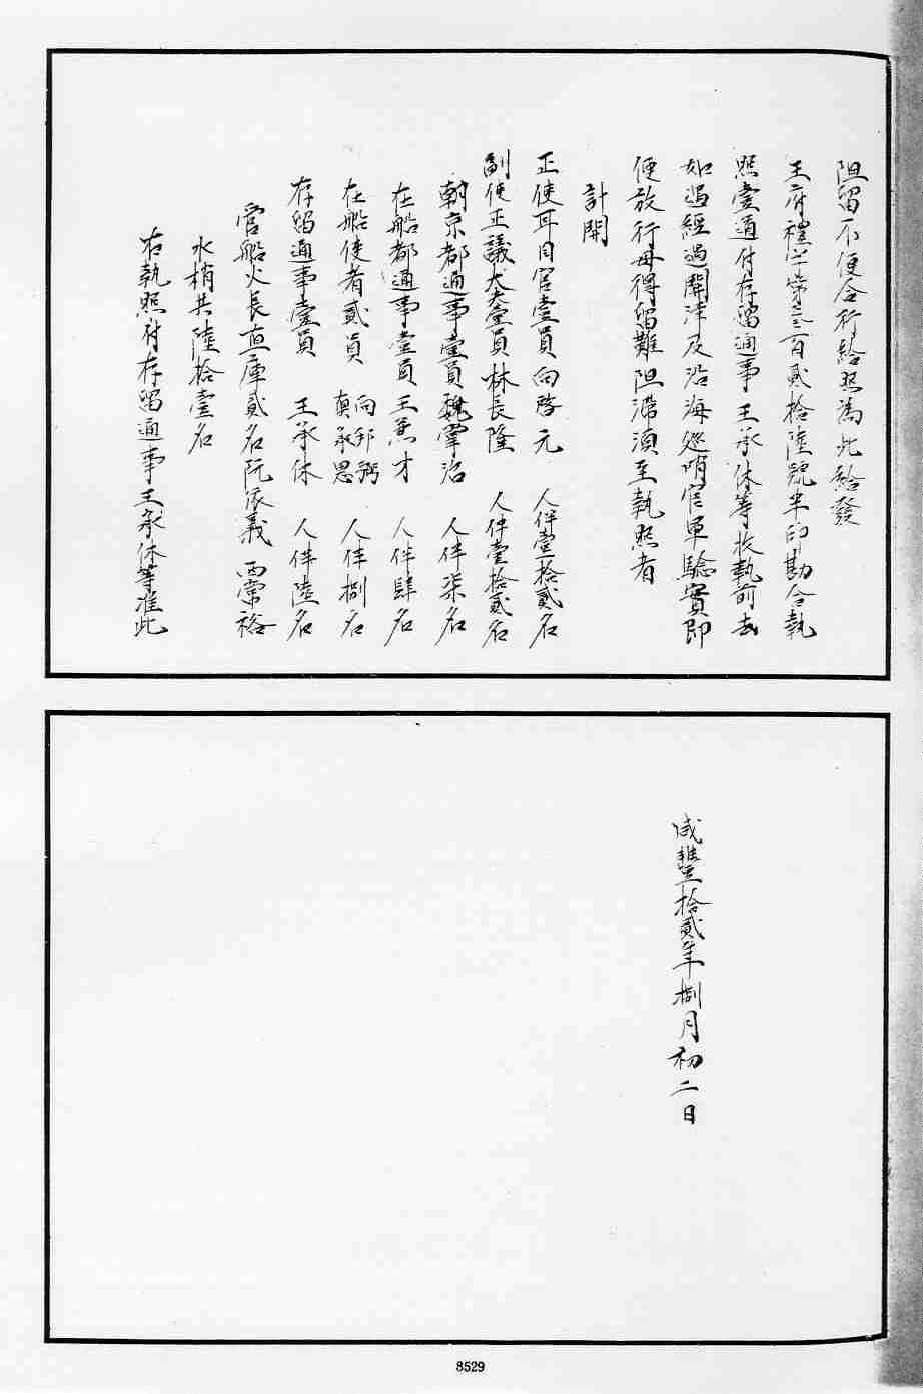 阻留不便合行給照為此給發
王府禮字第三百貳拾陸號半印勘合執
照壹通付存留通事王承休等收執前去
如遇經過關津及沿海巡哨官軍驗實即
便放行毋得留難阻滯須至執照者
計開
正使耳目官壹員向啓元 人伴壹拾貳名
副使正議大夫壹員林長隆 人伴壹拾貳名
朝京都通事壹員魏掌治 人伴柒名
在船都通事壹員王兼才 人伴肆名
在船使者貳員 向邦弼 真承思 人伴捌名
存留通事壹員 王承休 人伴陸名
官船火長直庫貳名阮依義 西常裕
水梢共陸拾壹名
右執照付存留通事王承休等准此
咸豐拾貳年捌月初二日
8529